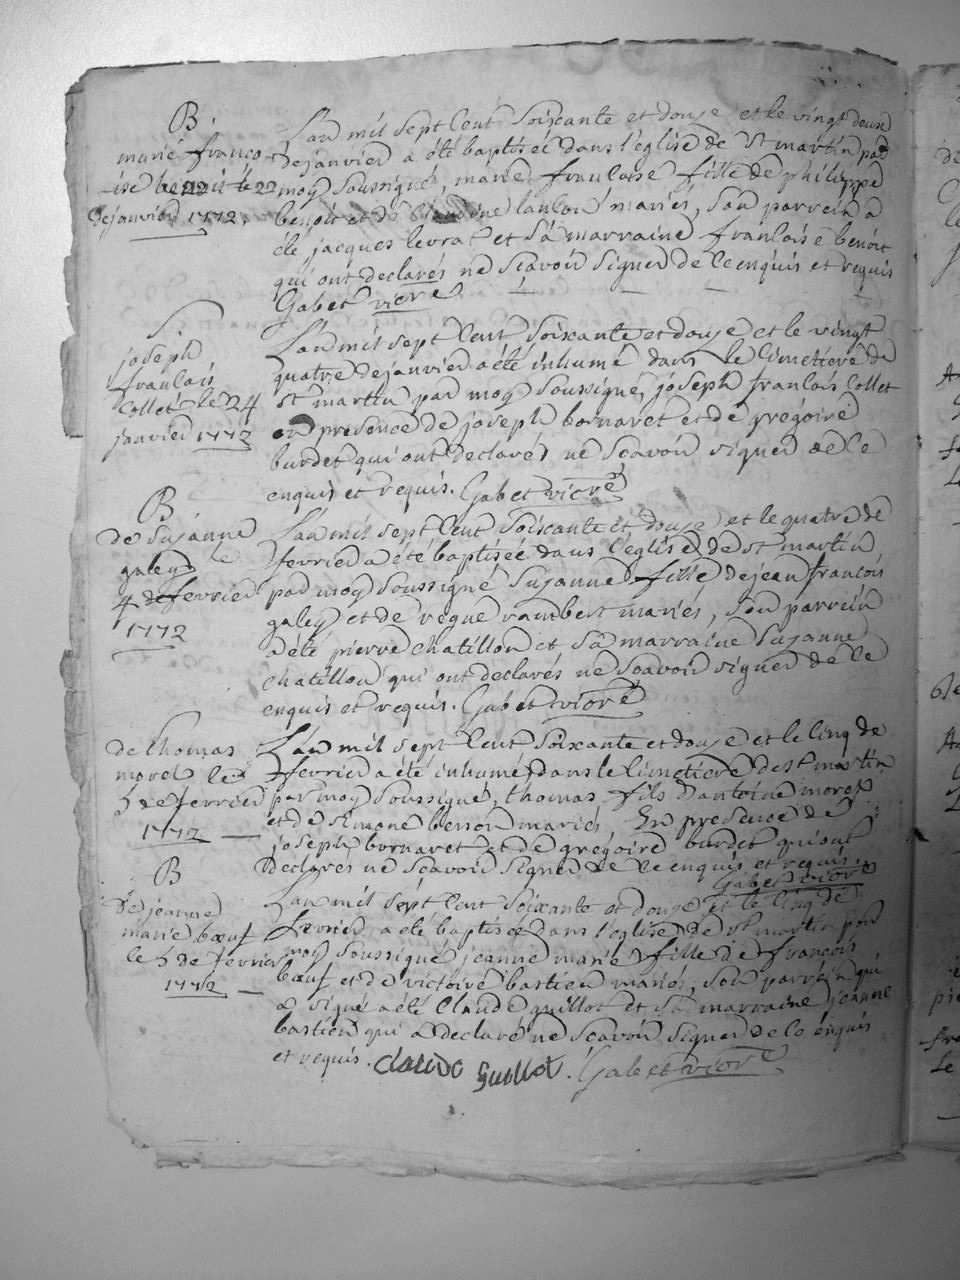 B.
marie franço
ise benoit le 22
de janvier 1772.
L'an mil sept cent soixante et douze et le vingt deux
de janvier a été baptisée dans l'eglise de st martin par
moy soussigné, marie francoise fille de philippe
benoit et de mariés, son parrein a
été jacques levrat et sa marraine francoise benoit
qui ont declarés ne scavoir signer de ce enquis et requis
Gabet vicre
S.
joseph
francois
Collet le 24
janvier 1772
L'an mil sept cent soixante et douze et le vingt
quatre de janvier a été inhumé dans le cimetiere de
st martin par moy soussigné, joseph francois Collet
en presence de joseph bornaret et de gregoire
burdet qui ont declarés ne scavoir signer de ce
enquis et requis. Gabet vicre
B
de Suzanne
galey le
4 de fevrier
1772
L'an mil sept cent soixante et douze et le quatre de
fevrier a été baptisée dans l'eglise de st martin
par moy soussigné Suzanne fille de jean francois
galey et de reque rambert mariés, son parrein
a été pierre chatillon et sa marraine Suzanne
chatillon qui ont declarés ne scavoir signer de ce
enquis et requis. Gabet vicre
de thomas
morel le
5 de fevrier
1772
L'an mil sept cent soixante et douze et le cinq de
fevrier a été inhumé dans le cimetiere de st martin
par moy soussigné, thomas fils d'antoine morel
et de simone besson mariés, En presence de
joseph bornaret et de gregoire burdet qui ont
declarés ne scavoir signer de ce enquis et requis.
Gabet vicre
B
de jeanne
marie bœuf
le 5 de fevrier
1772
L'an mil sept cent soixante et douze et le cinq de
fevrier a été baptisée dans l'eglise de st martin par
moy soussigné jeanne marie fille de francois
bœuf et de victoire bastien mariés, son parrein qui
a signé a été Claude guillot et sa marraine jeanne
bastien qui a declaré ne scavoir signer de ce enquis
et requis. claude guillot. Gabet vicre